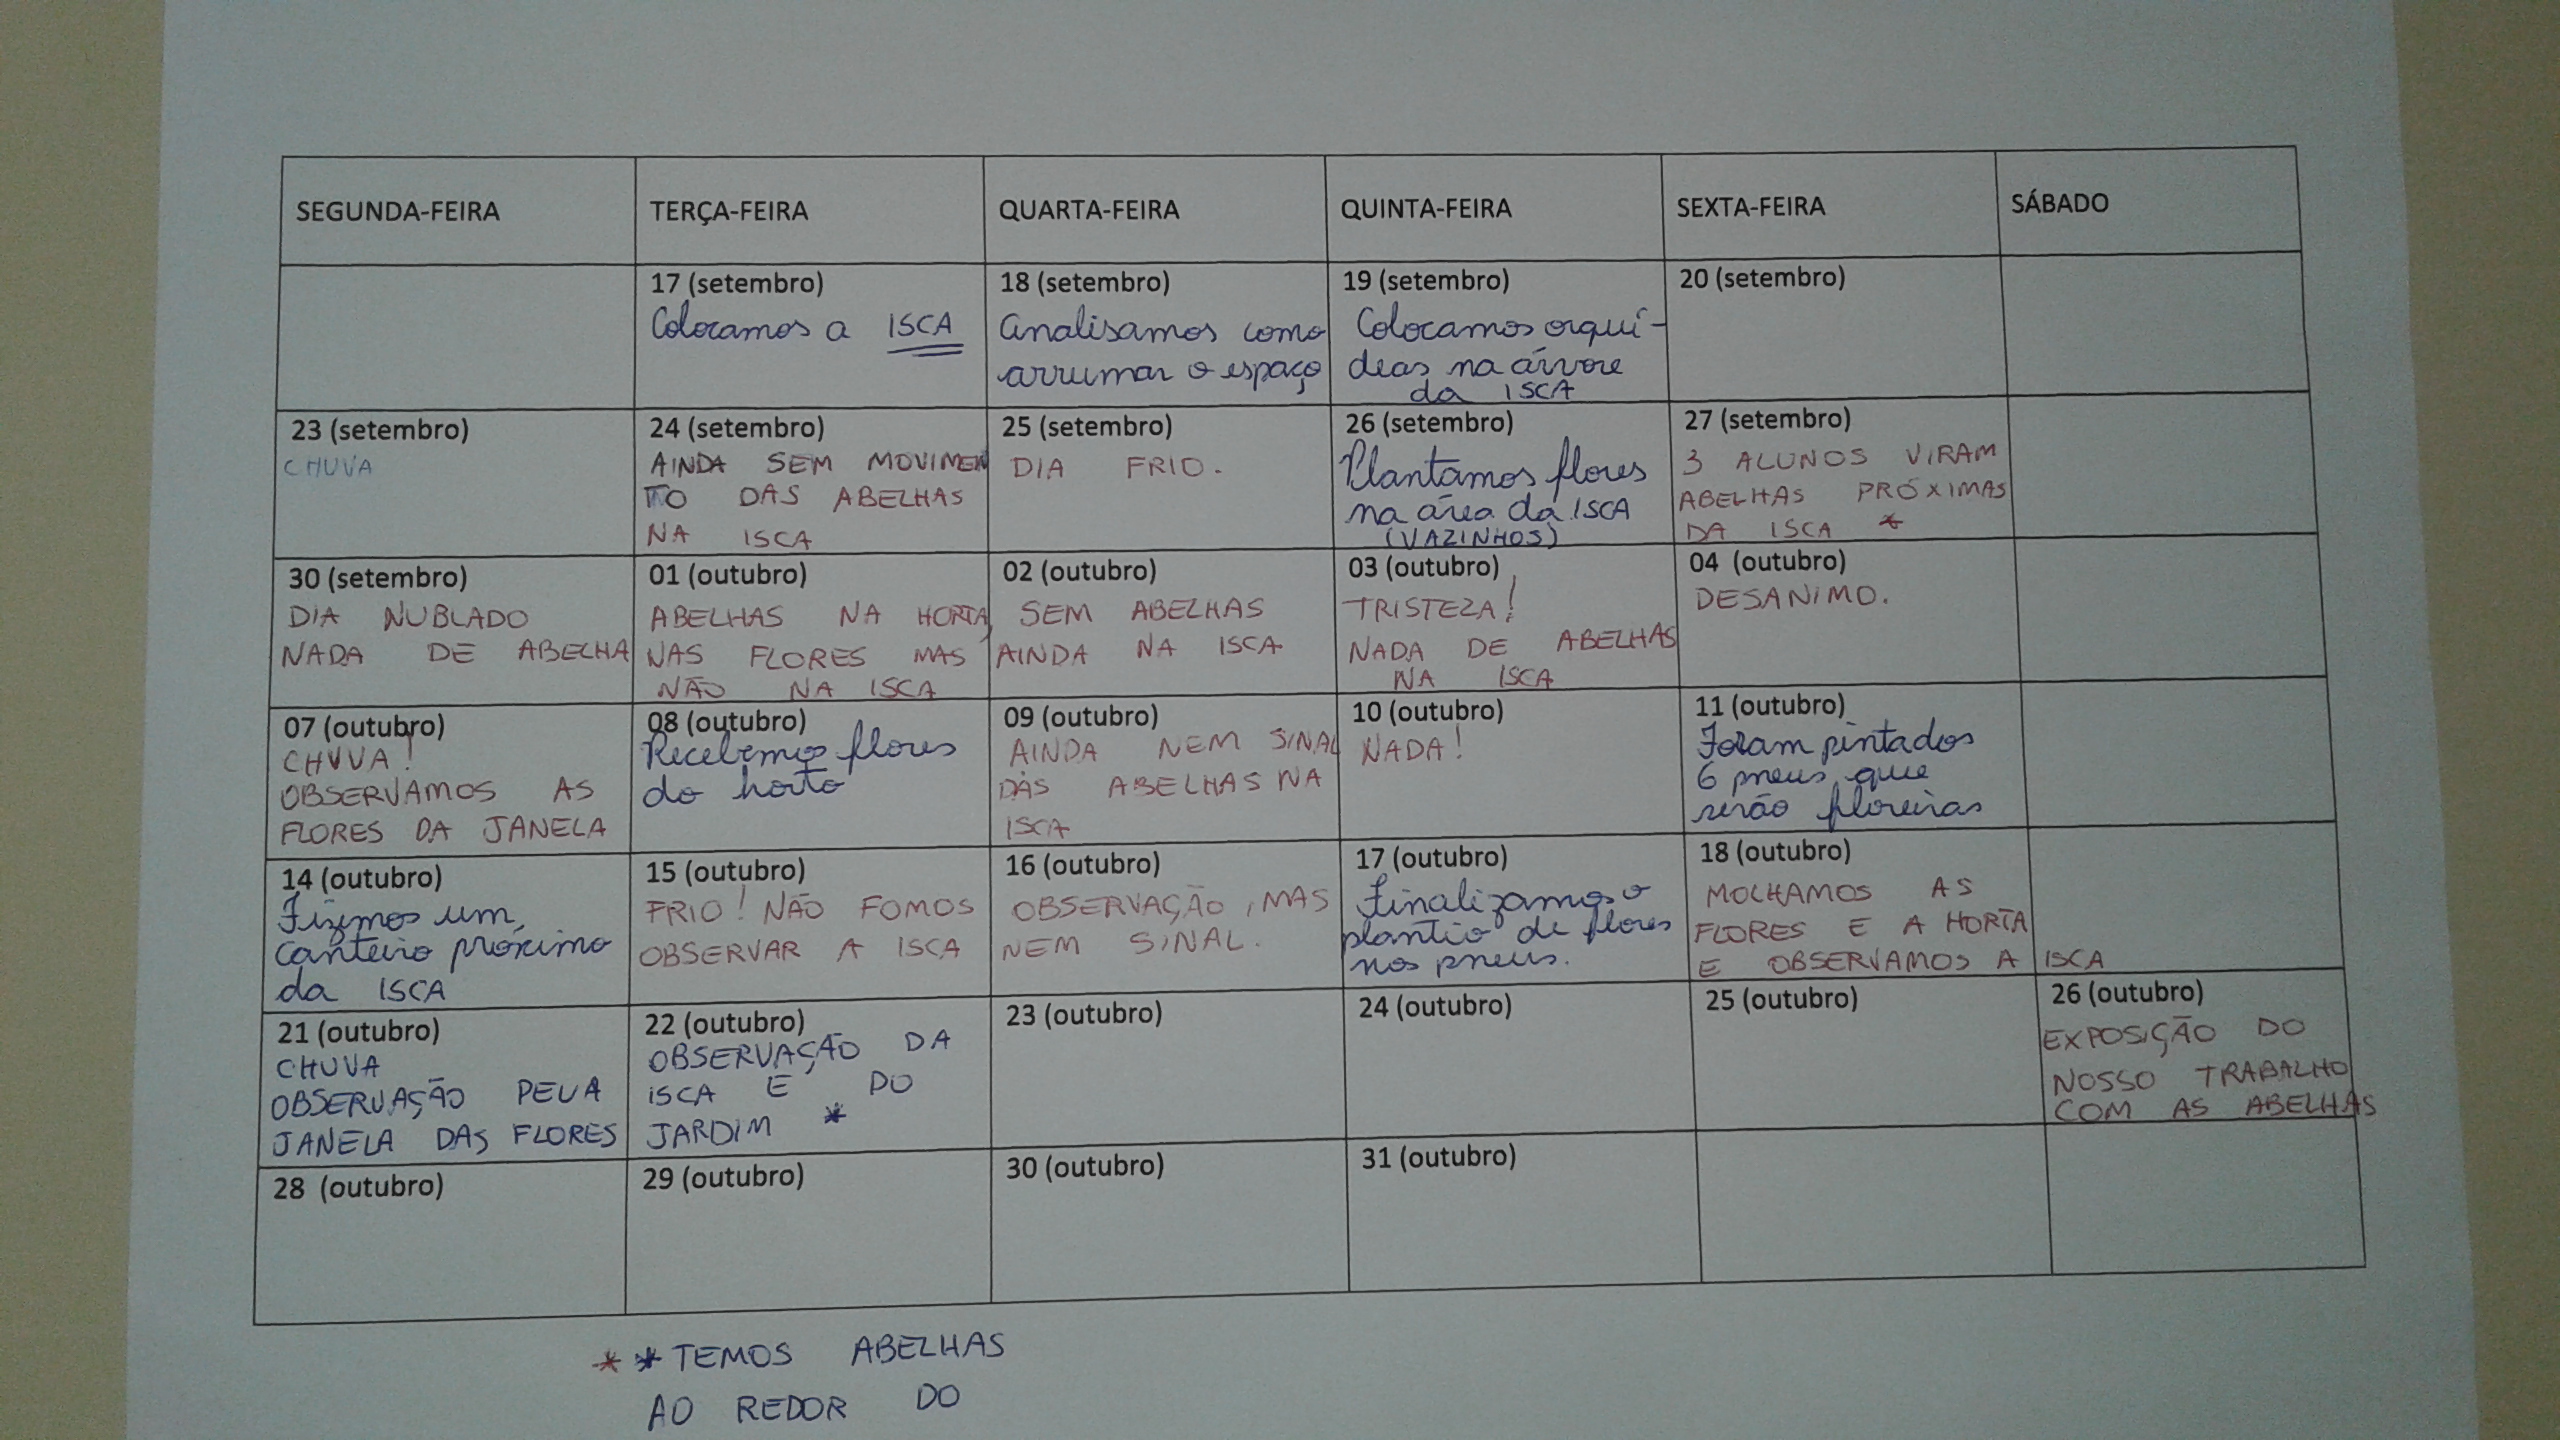 SEGUNDA-FEIRA
TERÇA-FEIRA
QUARTA-FEIRA
QUINTA-FEIRA
SEXTA-FEIRA
SÁBADO
17 (setembro)
Colocamos a ISCA
18 (setembro)
Analisamos como
arrumar o espaço
19 (setembro)
Colocamos orquí-
deas na árvore
da ISCA
20 (setembro)
23 (setembro)
CHUVA
24 (setembro)
AINDA SEM MOVIMEN
TO DAS ABELHAS
NA ISCA
25 (setembro)
DIA FRIO.
26 (setembro)
Plantamos flores
na área da ISCA
(VAZINHOS)
27 (setembro)
3 ALUNOS VIRAM
ABELHAS PRÓXIMAS
DA ISCA *
30 (setembro)
DIA NUBLADO
NADA DE ABELHA
01 (outubro)
ABELHAS NA HORTA,
NAS FLORES MAS
NÃO NA ISCA
02 (outubro)
SEM ABELHAS
AINDA NA ISCA
03 (outubro)
TRISTEZA!
NADA DE ABELHAS
NA ISCA
04 (outubro)
DESANIMO.
07 (outubro)
CHUVA!
OBSERVAMOS AS
FLORES DA JANELA
08 (outubro)
Recebemos flores
do horto
09 (outubro)
AINDA NEM SINAL
DAS ABELHAS NA
ISCA
10 (outubro)
NADA!
11 (outubro)
Foram pintados
6 pneus que
serão floreiras
14 (outubro)
Fizemos um
canteiro próximo
da ISCA
15 (outubro)
FRIO! NÃO FOMOS
OBSERVAR A ISCA
16 (outubro)
OBSERVAÇÃO, MAS
NEM SINAL.
17 (outubro)
Finalizamos o
plantio de flores
nos pneus.
18 (outubro)
MOLHAMOS AS
FLORES E A HORTA
E OBSERVAMOS A ISCA
21 (outubro)
CHUVA
OBSERVAÇÃO PELA
JANELA DAS FLORES
22 (outubro)
OBSERVAÇÃO DA
ISCA E DO
JARDIM *
23 (outubro)
24 (outubro)
25 (outubro)
26 (outubro)
EXPOSIÇÃO DO
NOSSO TRABALHO
COM AS ABELHAS
28 (outubro)
29 (outubro)
30 (outubro)
31 (outubro)
* * TEMOS ABELHAS
AO REDOR DO